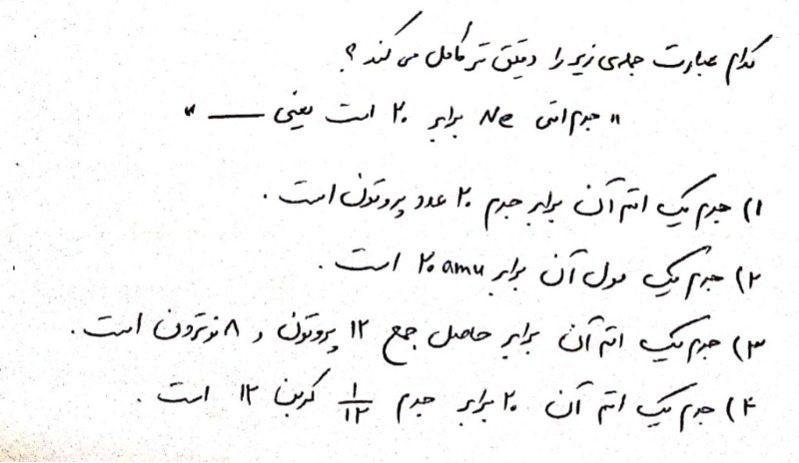 کدام عبارت جمله‌ی زیر را دقیق تر کامل می کند؟
"جرم اتمی Ne برابر ۲۰ است یعنی ــــــ"
۱) جرم یک اتم آن برابر جرم ۲۰ عدد پروتون است.
۲) جرم یک مول آن برابر ۲۰ amu است.
۳) جرم یک اتم آن برابر حاصل جمع ۱۲ پروتون و ۸ نوترون است.
۴) جرم یک اتم آن ۲۰ برابر جرم ۱/۱۲ کربن ۱۲ است.